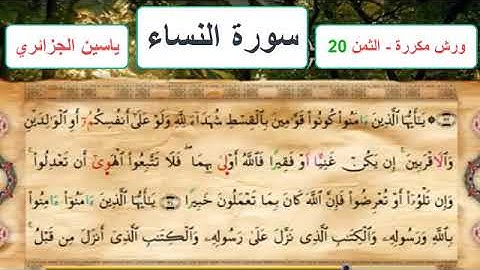 ورش مكررة - الثمن 20
سورة النساء
ياسين الجزائري
يَٰٓأَيُّهَا ٱلَّذِينَ ءَامَنُوا۟ كُونُوا۟ قَوَّٰمِينَ بِٱلْقِسْطِ شُهَدَآءَ لِلَّهِ وَلَوْ عَلَىٰٓ أَنفُسِكُمُۥٓ أَوِ ٱلْوَٰلِدَيْنِ
وَٱلَاقْرَبِينَ إِنْ يَّكُنْ غَنِيًّا اَوْ فَقِيرًا فَٱللَّهُ أَوْلَىٰ بِهِمَا فَلَا تَتَّبِعُوا۟ ٱلْهَوَىٰٓ أَن تَعْدِلُوا۟
وَإِن تَلْوُۥٓا۟ أَوْ تُعْرِضُوا۟ فَإِنَّ ٱللَّهَ كَانَ بِمَا تَعْمَلُونَ خَبِيرًا يَٰٓأَيُّهَا ٱلَّذِينَ ءَامَنُوٓا۟ ءَامِنُوا۟
بِٱللَّهِ وَرَسُولِهِۦ وَٱلْكِتَٰبِ ٱلَّذِى نَزَّلَ عَلَىٰ رَسُولِهِۦ وَٱلْكِتَٰبِ ٱلَّذِىٓ أَنزَلَ مِن قَبْلُ